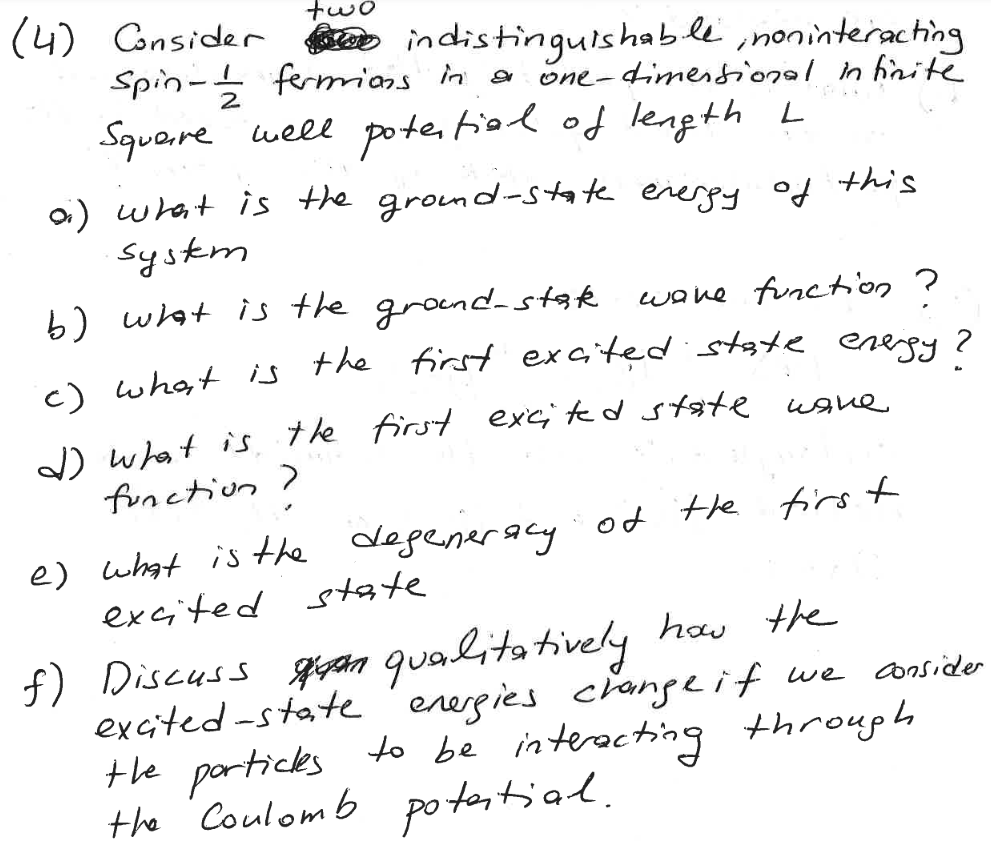 two
(4) Consider indistinguishable, noninteracting
spin-1/2 fermions in a one-dimensional infinite
Square well potential of length L
a) what is the ground-state energy of this
system
b) what is the ground-state wave function ?
c) what is the first excited state energy ?
d) what is the first excited state wave
function ?
e) what is the degeneracy of the first
excited state
f) Discuss qualitatively how the
excited-state energies change if we consider
the particles to be interacting through
the Coulomb potential.